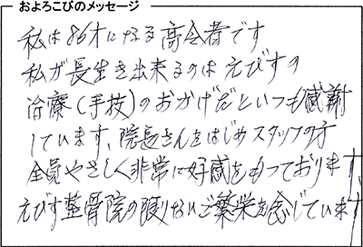 およろこびのメッセージ
私は86才になる高令者です
私が長生き出来るのはえびすの
治療(手技)のおかげだといつも感謝
しています、院長さんをはじめスタッフの方
全員やさしく非常に好感をもっております
えびす整骨院の限りないご繁栄を念じています